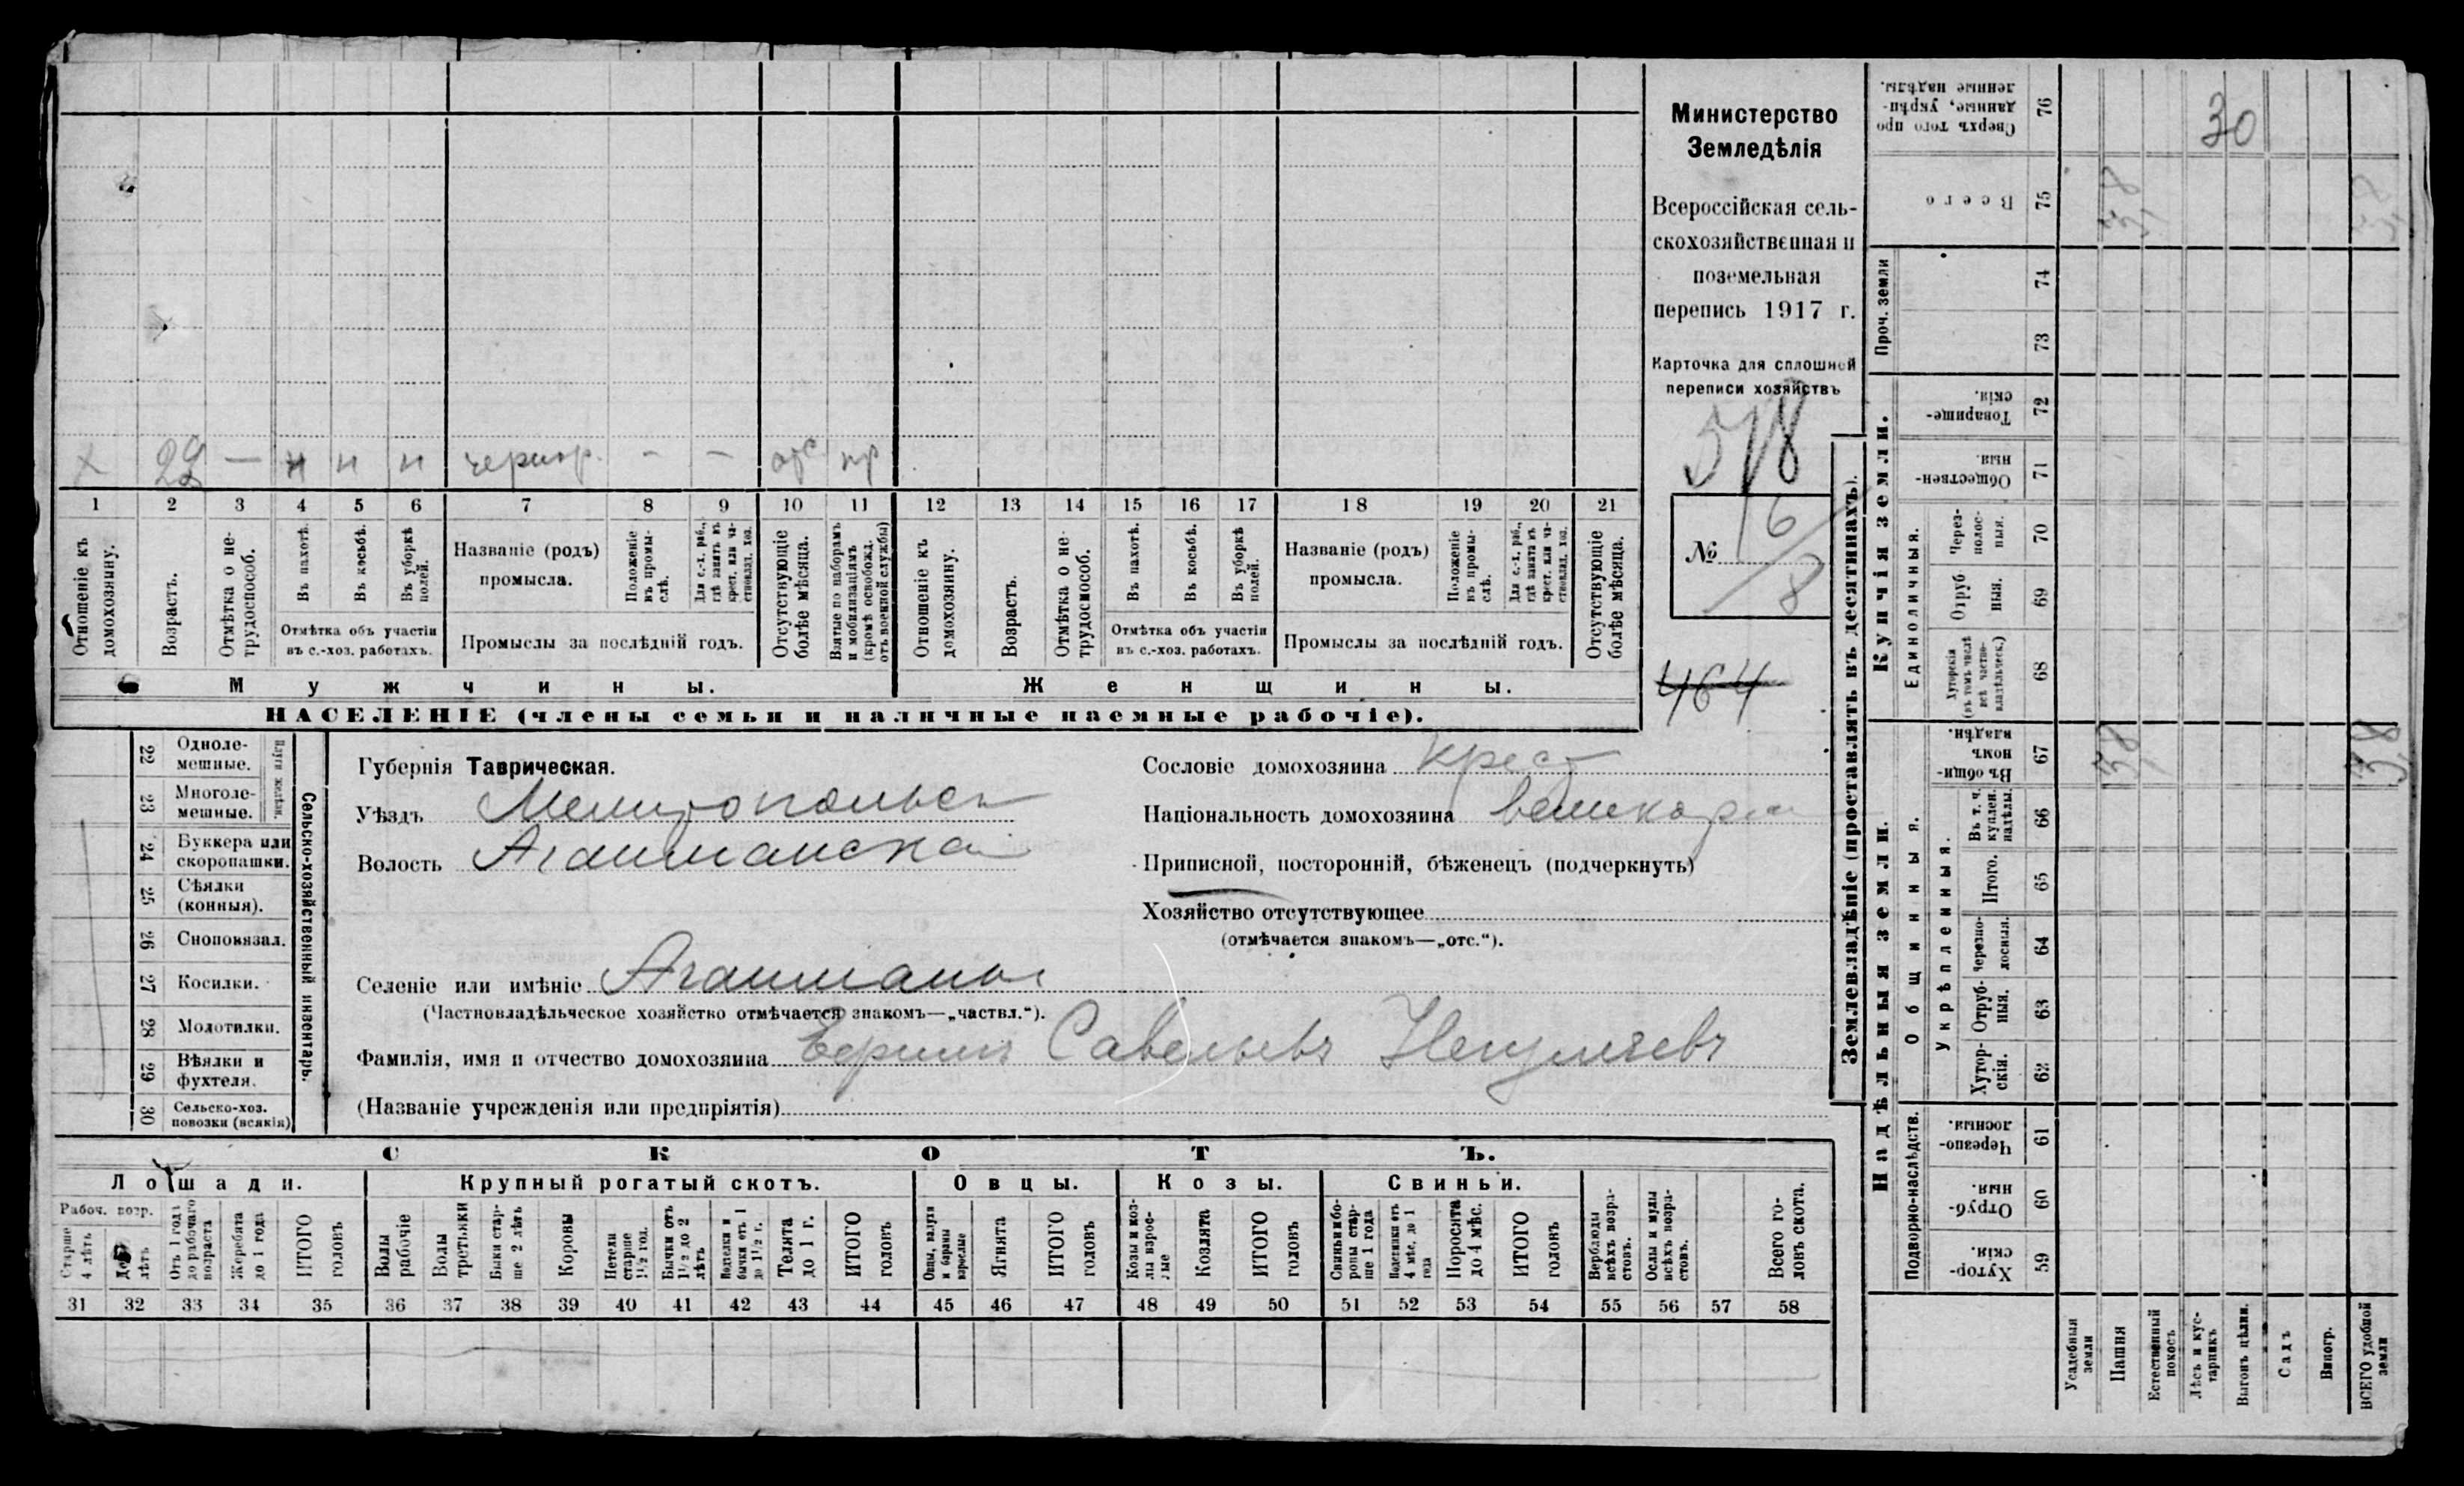 Министерство
Земледѣлія
Всероссійская сель-
скохозяйственная и
поземельная
перепись 1917 г.
Карточка для сплошной
переписи хозяйствъ
518
№ 16/8
464
х 29 — н н н чернор. - - отс пр
1 2 3 4 5 6 7 8 9 10 11 12 13 14 15 16 17 18 19 20 21
Отношеніе къ домохозяину.
Возрастъ.
Отмѣтка о не-трудоспособ.
Въ пахотѣ.
Въ косьбѣ.
Въ уборкѣ полей.
Отмѣтка объ участіи
въ с.-хоз. работахъ.
Названіе (родъ)
промысла.
Положеніе въ промы-слѣ.
Для с.-х. раб., гдѣ занятъ въ крест. или ча-стновлад. хоз.
Промыслы за послѣдній годъ.
Отсутствующіе болѣе мѣсяца.
Взятые по наборамъ и мобилизаціямъ (кромѣ освобожд. отъ военной службы)
Отношеніе къ домохозяину.
Возрастъ.
Отмѣтка о не-трудоспособ.
Въ пахотѣ.
Въ косьбѣ.
Въ уборкѣ полей.
Отмѣтка объ участіи
въ с.-хоз. работахъ.
Названіе (родъ)
промысла.
Положеніе въ промы-слѣ.
Для с.-х. раб., гдѣ занята въ крест. или ча-стновлад. хоз.
Промыслы за послѣдній годъ.
Отсутствующіе болѣе мѣсяца.
Мужчины.
Женщины.
НАСЕЛЕНІЕ (члены семьи и наличные наемные рабочіе).
22 Одноле-мешные.
23 Многоле-мешные.
Плуги желѣзн.
24 Буккера или скоропашки.
25 Сѣялки (конныя).
26 Сноповязал.
27 Косилки.
28 Молотилки.
29 Вѣялки и фухтеля.
30 Сельско-хоз. повозки (всякія)
Сельско-хозяйственный инвентарь.
Губернія Таврическая.
Уѣздъ Мелитопольск
Волость Агайманска
Селеніе или имѣніе Агайманы
(Частновладѣльческое хозяйство отмѣчается знакомъ—„частвл.“).
Фамилія, имя и отчество домохозяина Савельевъ
(Названіе учрежденія или предпріятія)
Сословіе домохозяина крест
Національность домохозяина великорос
Приписной, посторонній, бѣженецъ (подчеркнуть)
Хозяйство отсутствующее
(отмѣчается знакомъ—„отс.“).
СКОТЪ.
Лошади.
Крупный рогатый скотъ.
Овцы.
Козы.
Свиньи.
Рабоч. возр.
Старше 4 лѣтъ
лѣтъ
Отъ 1 года до рабочаго возраста
Жеребята до 1 года
ИТОГО головъ
Волы рабочіе
Волы третьяки
Быки стар-ше 2 лѣтъ
Коровы
Нетели старше 1½ год.
Бычки отъ 1½ до 2 лѣтъ
Подтелки и бычки отъ 1 до 1½ г.
Телята до 1 г.
ИТОГО головъ
Овцы, валухи и бараны взрослые
Ягнята
ИТОГО головъ
Козы и коз-лы взрос-лые
Козлята
ИТОГО головъ
Свиньи и бо-ровы стар-ше 1 года
Подсвинки отъ 4 мѣс. до 1 года
Поросята до 4 мѣс.
ИТОГО головъ
Верблюды всѣхъ возра-стовъ.
Ослы и мулы всѣхъ возра-стовъ.
Всего го-ловъ скота.
31 32 33 34 35 36 37 38 39 40 41 42 43 44 45 46 47 48 49 50 51 52 53 54 55 56 57 58
Землевладѣніе (проставлять въ десятинахъ).
Надѣльныя земли.
Купчія земли.
Проч. земли
Подворно-наслѣдств.
Общинныя.
Укрѣпленныя.
Единоличныя.
Хутор-скія. 59
Отруб-ныя. 60
Черезпо-лосныя. 61
Хутор-скія. 62
Отруб-ныя. 63
Черезпо-лосныя. 64
Итого. 65
Въ т. ч. куплен. надѣлы. 66
Въ общи-номъ владѣн. 67 3,8 3,8
Хуторскія (въ томъ числѣ всѣ частно-владѣльческ.) 68
Отруб-ныя. 69
Через-полос-ныя. 70
Обществен-ныя. 71
Товарище-скія. 72
73
74
Всего 75 3,8 3,8
Сверхъ того про-данные, укрѣп-ленные надѣлы. 76 30
Усадебныя земли
Пашня
Естественный покосъ
Лѣсъ и кус-тарникъ
Выгонъ цѣлин.
Садъ
Виногр.
ВСЕГО удобной земли